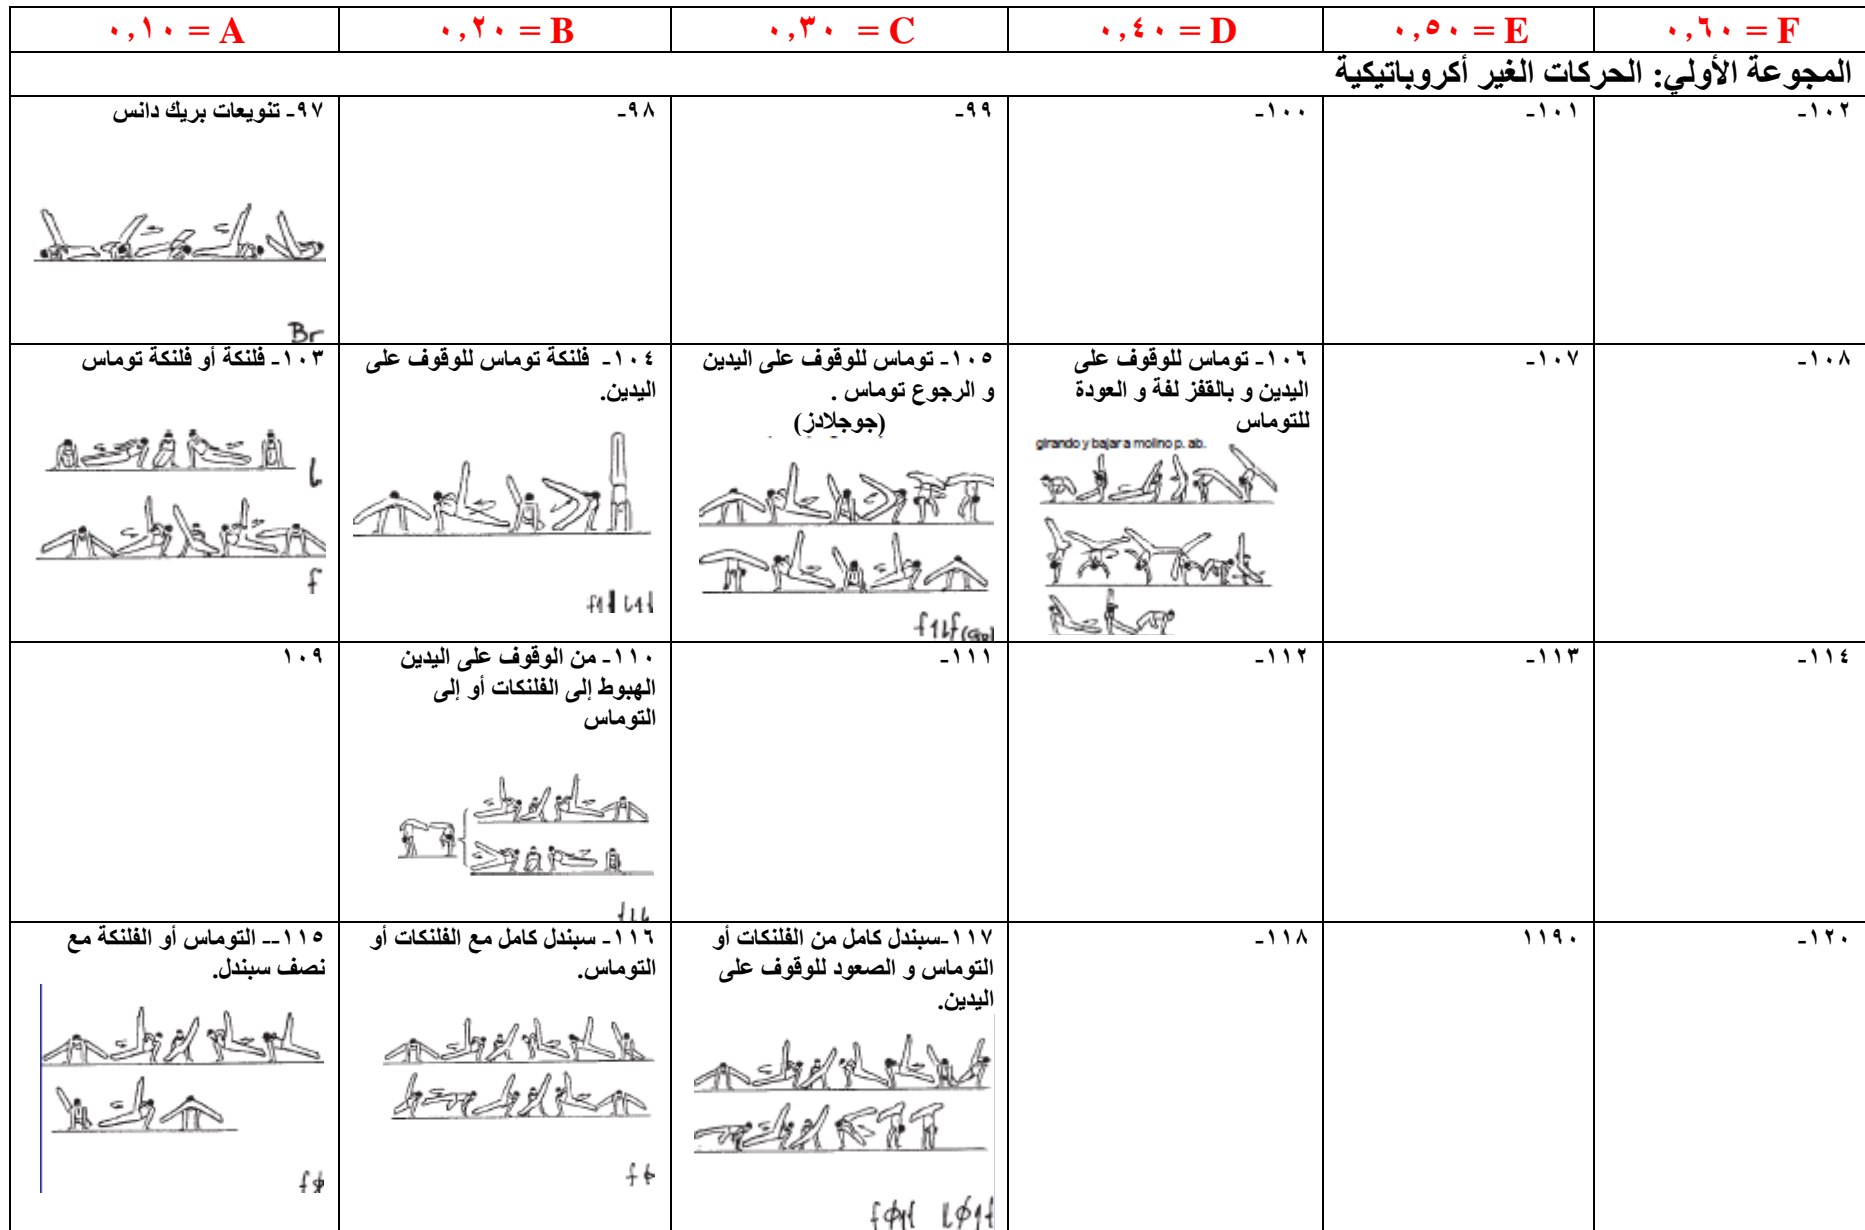 ٠,١٠ = A
٠,٢٠ = B
٠,٣٠ = C
٠,٤٠ = D
٠,٥٠ = E
٠,٦٠ = F
المجوعة الأولي: الحركات الغير أكروباتيكية
٩٧- تنويعات بريك دانس
Br
٩٨-
٩٩-
١٠٠-
١٠١-
١٠٢-
١٠٣- فلنكة أو فلنكة توماس
f
١٠٤- فلنكة توماس للوقوف على
اليدين.
١٠٥- توماس للوقوف على اليدين
و الرجوع توماس .
(جوجلادز)
١٠٦- توماس للوقوف على
اليدين و بالقفز لفة و العودة
للتوماس
girando y bajar a molino p. ab.
١٠٧-
١٠٨-
١٠٩
١١٠- من الوقوف على اليدين
الهبوط إلى الفلنكات أو إلى
التوماس
١١١-
١١٢-
١١٣-
١١٤-
١١٥-- التوماس أو الفلنكة مع
نصف سبندل.
١١٦- سبندل كامل مع الفلنكات أو
التوماس.
١١٧-سبندل كامل من الفلنكات أو
التوماس و الصعود للوقوف على
اليدين.
١١٨-
١١٩٠
١٢٠-